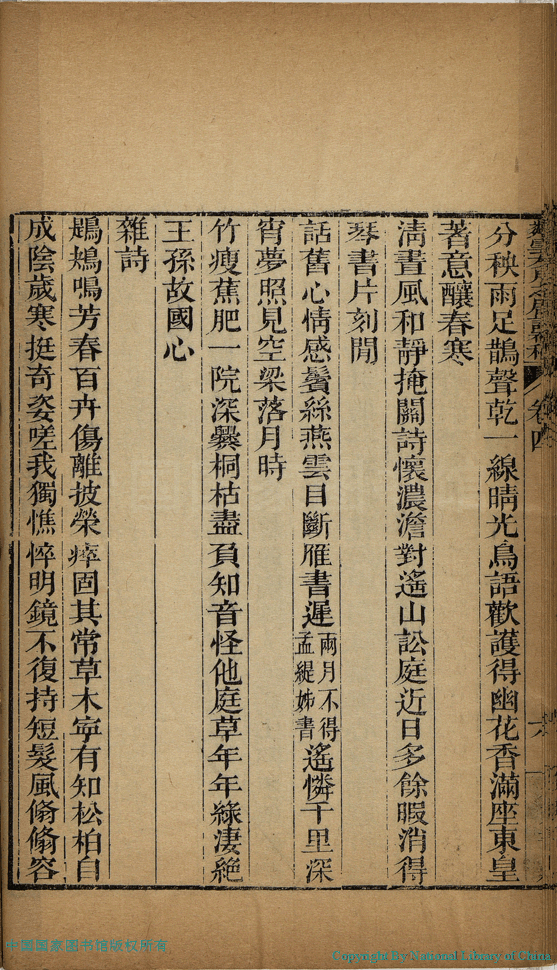 卷四
分秧雨足鵲聲乾一線晴光鳥語歡護得幽花香滿座東皇
著意釀春寒
清晝風和靜掩關詩懷濃澹對遙山訟庭近日多餘暇消得
琴書片刻閒
話舊心情感鬢絲燕雲目斷雁書遲兩月不得孟緹姊書遙憐千里深
宵夢照見空梁落月時
竹瘦蕉肥一院深爨桐枯盡負知音怪他庭草年年綠淒絕
王孫故國心
雜詩
鶗鴂鳴芳春百卉傷離披榮瘁固其常草木寧有知松柏自
成陰歲寒挺奇姿嗟我獨憔悴明鏡不復持短髮風翛翛容
中国国家图书馆版权所有
Copyright By National Library of China